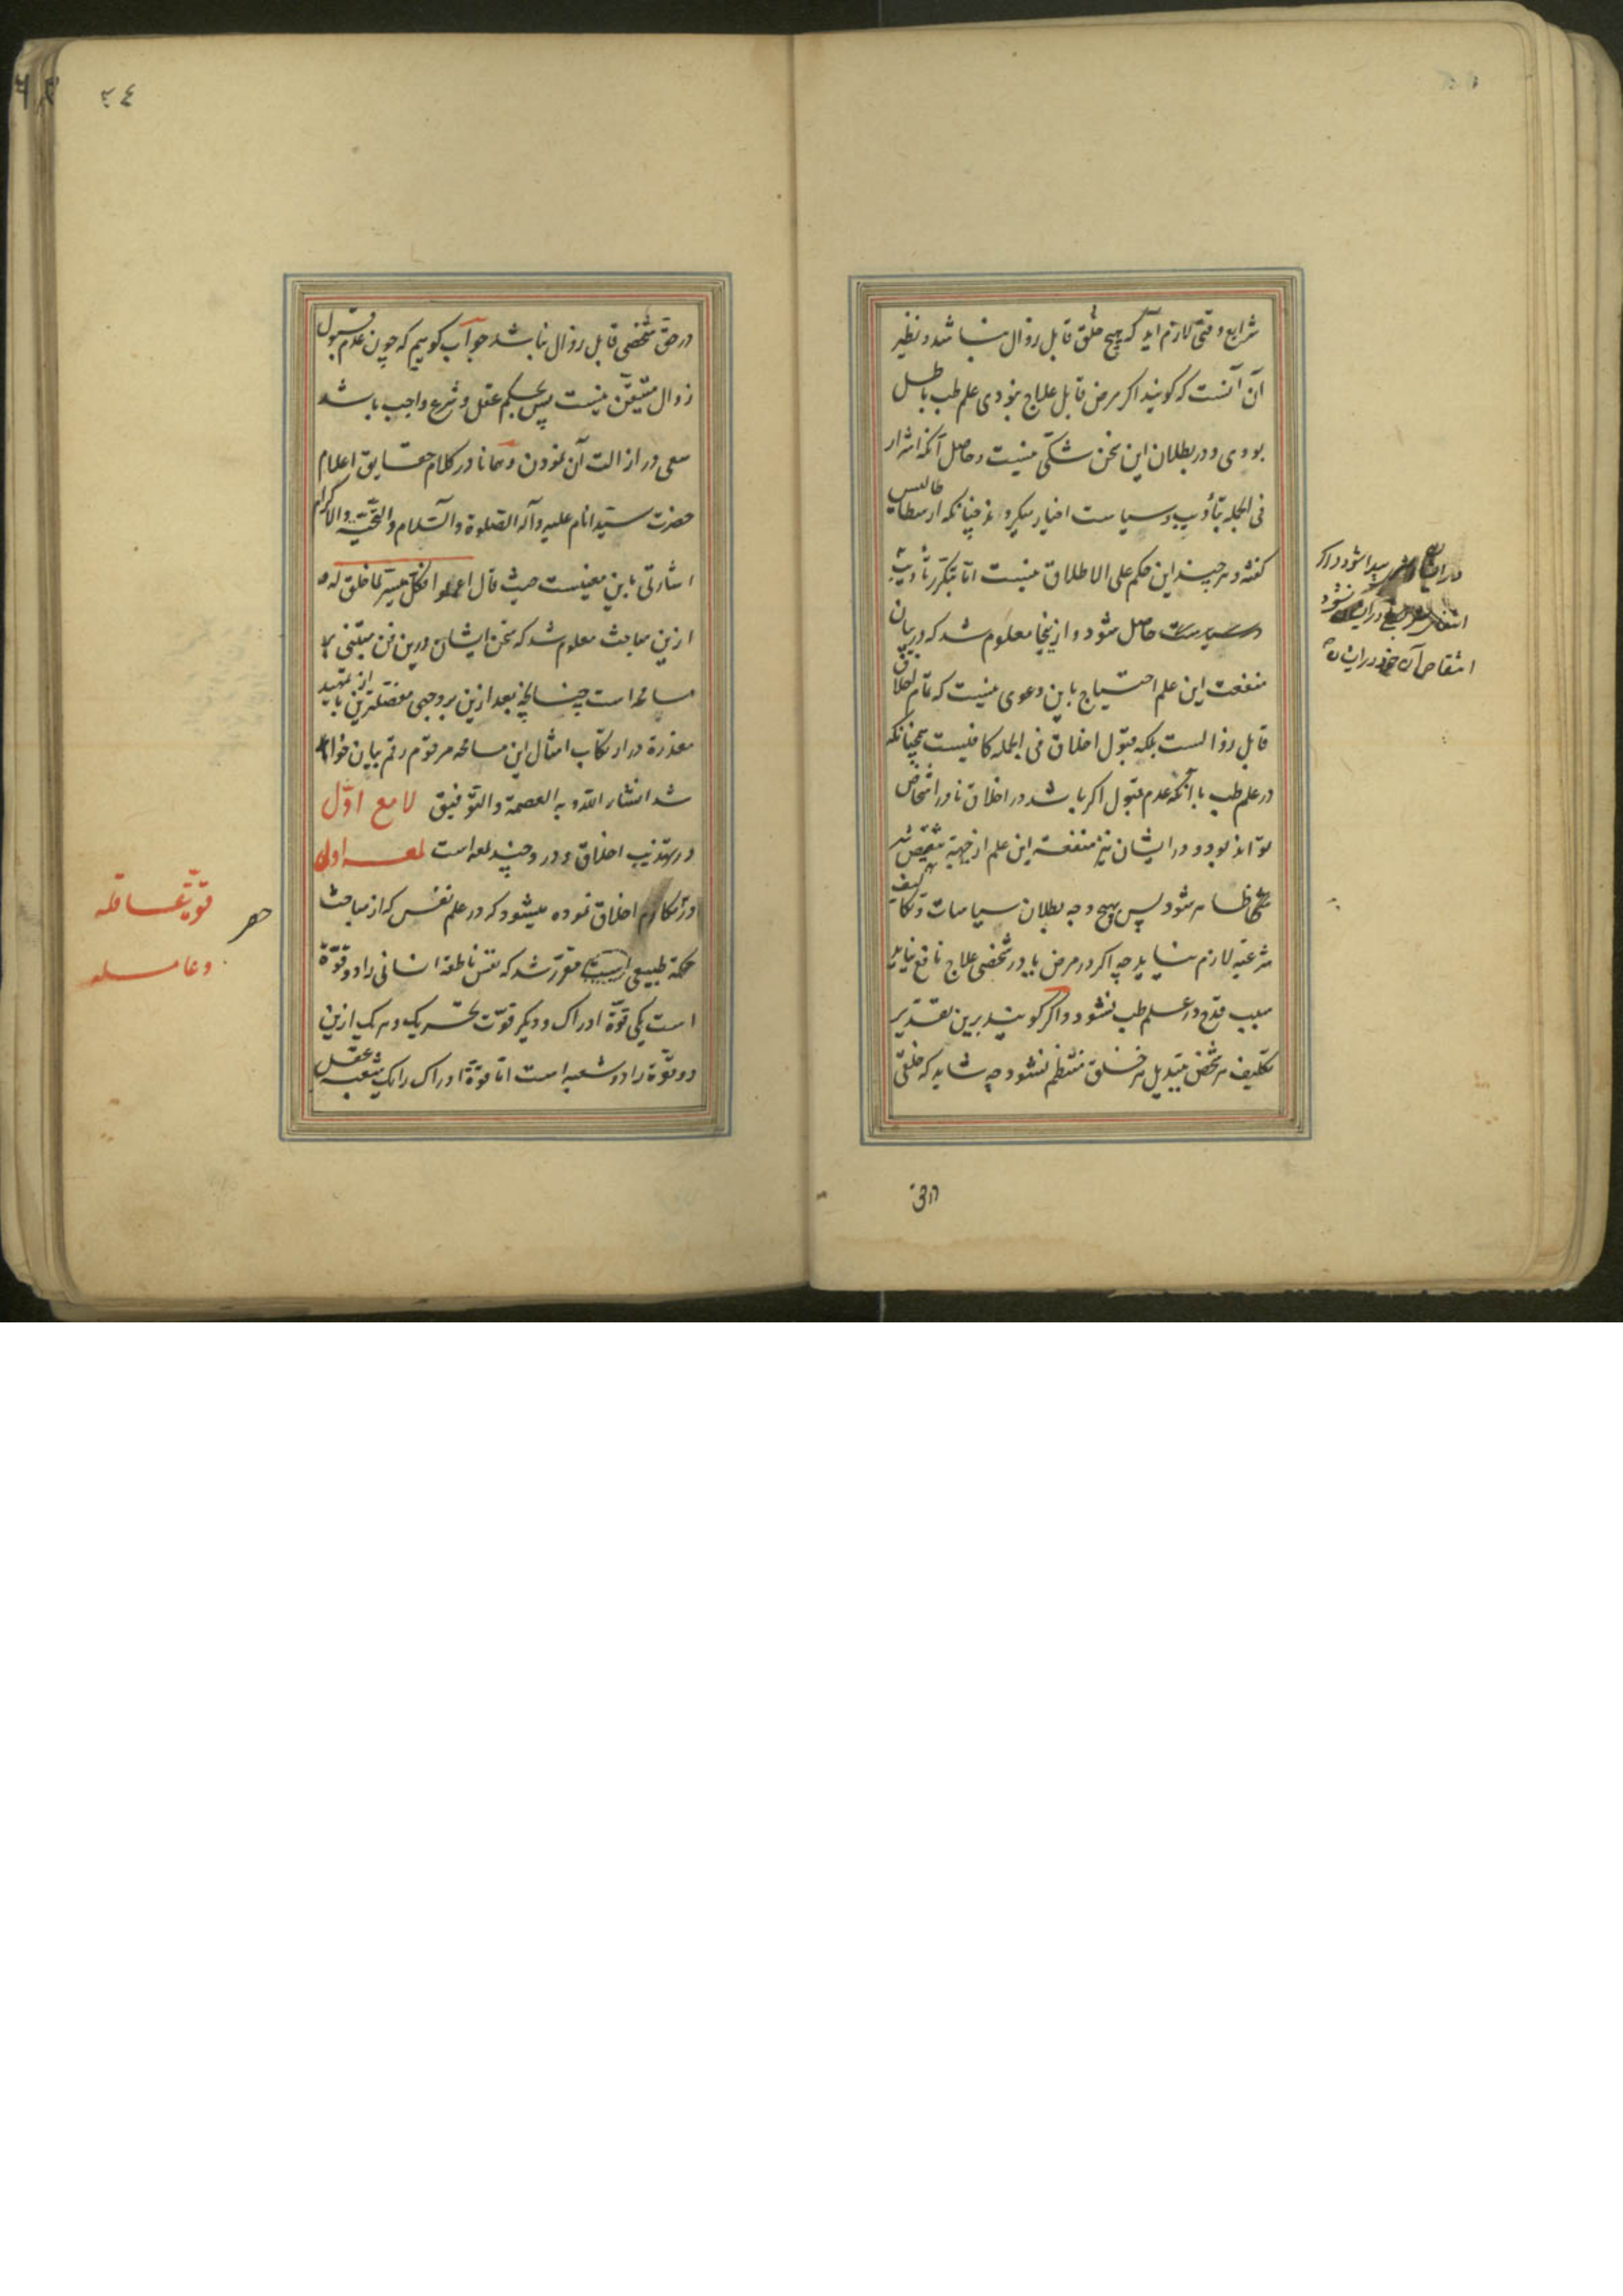 شرایع وقتی لازم آید که هیچ خلق قابل زوال نباشد و نظیر
آن آنست که گویند اگر مرض قابل علاج نبودی علم طب باطل
بودی و در بطلان این سخن شکی نیست و حاصل آنکه اشرار
فی الجمله بتأدیب و سیاست اخیار میگردند چنانکه ارسطاطالیس
گفته و هر چند این حکم علی الاطلاق نیست اما بتکرر تأدیب
و سیاست حاصل شود و از اینجا معلوم شد که در بیان
منفعت این علم احتیاج باین دعوی نیست که تمام اخلاق
قابل زوالست بلکه قبول اخلاق فی الجمله کافیست همچنانکه
در علم طب با آنکه عدم قبول اگر باشد در اخلاق نادر اشخاص
تواند بود و در ایشان نیز منفعة این علم از جهة
ظاهر شود پس بهیچ وجه بطلان سیاسات و تکالیف
شرعیه لازم نیاید چه اگر در مرض یا در شخصی علاج نافع نیاید
سبب قدح در علم طب نشود و اگر گویند برین تقدیر
تکلیف هر شخص بتبدیل هر خلق منتظم نشود چه شاید که خلقی
پیدا شود و اگر
در ایشان نشود
انتقاص آن خود در ایشان
در حق
۳٤
در حق شخصی قابل زوال نباشد جواب گوییم که چون عدم قبول
زوال متیقن نیست پس بحکم عقل و شرع واجب باشد
سعی در ازالت آن نمودن و همانا در کلام حقایق اعلام
حضرت سید انام علیه و آله الصلوة والسلام والتحیة والاکرام
اشارتی باین معنیست حیث قال اعملوا فکل میسر لما خلق له
ازین مباحث معلوم شد که سخن ایشان درین فن مبتنی بر
مسامحه است چنانچه بعد ازین بر وجهی مفصلترین با از تمهید
معذرة در ارتکاب امثال این مسامحه مرقوم رقم بیان خواهد
شد انشاء الله و به العصمة والتوفیق لامع اول
در تهذیب اخلاق و در و چند لمعه است لمعه اول
در مکارم اخلاق نموده میشود که در علم نفس که از مباحث
حکمة طبیعی است مقرر شد که نفس ناطقه انسانی را دو قوة
است یکی قوة ادراک و دیگر قوت تحریک و هر یک ازین
دو قوة را دو شعبه است اما قوة ادراک را یک شعبه عقل
قوت عاقله
و عامله